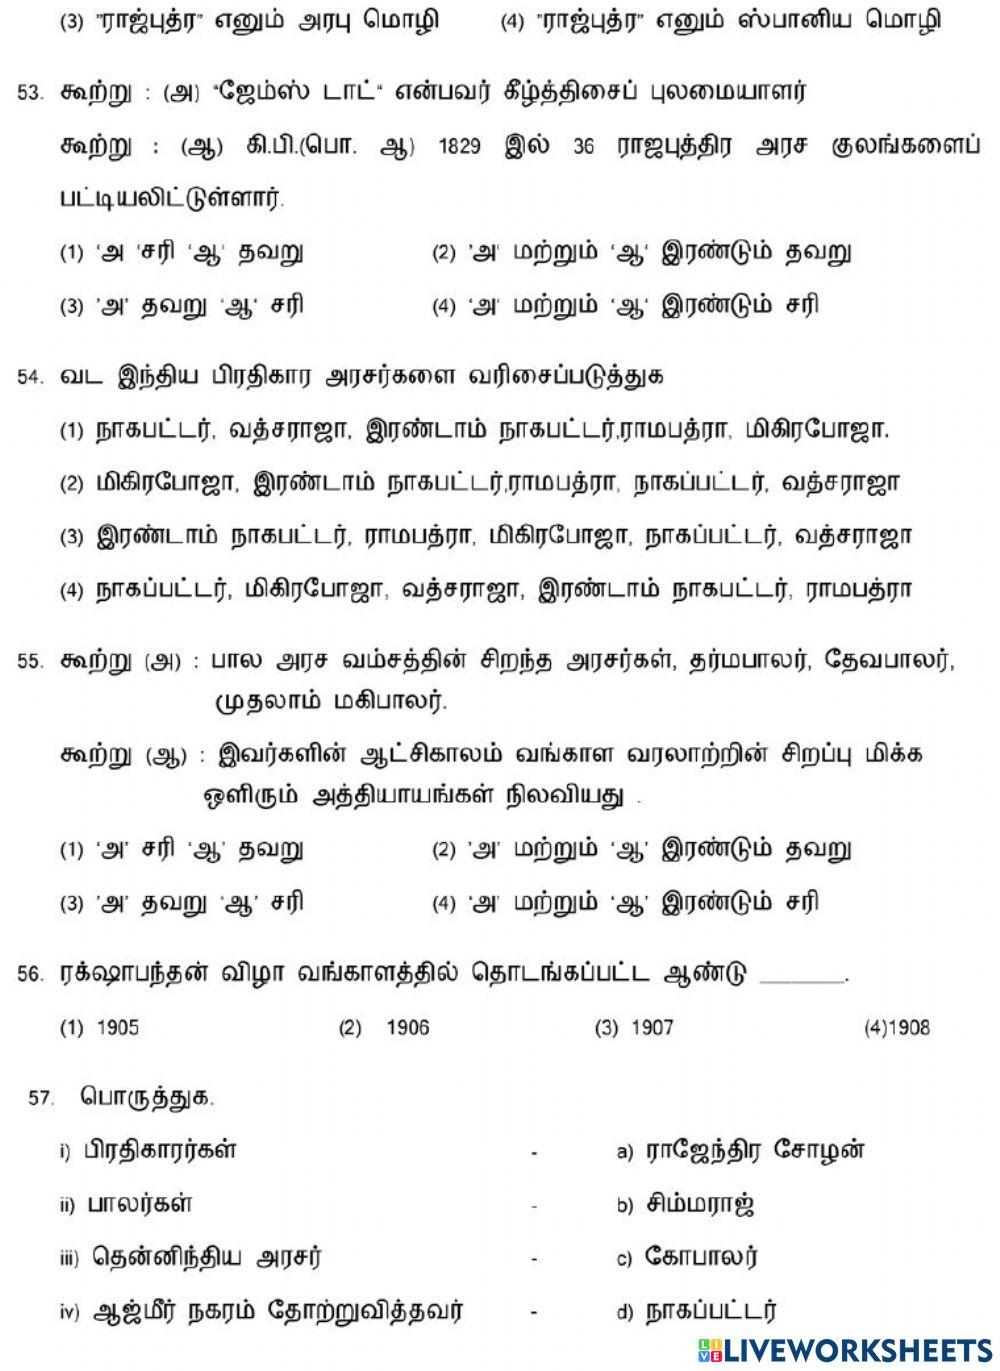 (3) "ராஜ்புத்ர" எனும் அரபு மொழி (4) "ராஜ்புத்ர" எனும் ஸ்பானிய மொழி
53. கூற்று : (அ) "ஜேம்ஸ் டாட்" என்பவர் கீழ்த்திசைப் புலமையாளர்
கூற்று : (ஆ) கி.பி.(பொ. ஆ) 1829 இல் 36 ராஜபுத்திர அரச குலங்களைப்
பட்டியலிட்டுள்ளார்.
(1) 'அ 'சரி 'ஆ' தவறு (2) 'அ' மற்றும் 'ஆ' இரண்டும் தவறு
(3) 'அ' தவறு 'ஆ' சரி (4) 'அ' மற்றும் 'ஆ' இரண்டும் சரி
54. வட இந்திய பிரதிகார அரசர்களை வரிசைப்படுத்துக
(1) நாகபட்டர், வத்சராஜா, இரண்டாம் நாகபட்டர்,ராமபத்ரா, மிகிரபோஜா.
(2) மிகிரபோஜா, இரண்டாம் நாகபட்டர்,ராமபத்ரா, நாகப்பட்டர், வத்சராஜா
(3) இரண்டாம் நாகபட்டர், ராமபத்ரா, மிகிரபோஜா, நாகப்பட்டர், வத்சராஜா
(4) நாகப்பட்டர், மிகிரபோஜா, வத்சராஜா, இரண்டாம் நாகபட்டர், ராமபத்ரா
55. கூற்று (அ) : பால அரச வம்சத்தின் சிறந்த அரசர்கள், தர்மபாலர், தேவபாலர்,
முதலாம் மகிபாலர்.
கூற்று (ஆ) : இவர்களின் ஆட்சிகாலம் வங்காள வரலாற்றின் சிறப்பு மிக்க
ஒளிரும் அத்தியாயங்கள் நிலவியது .
(1) 'அ' சரி 'ஆ' தவறு (2) 'அ' மற்றும் 'ஆ' இரண்டும் தவறு
(3) 'அ' தவறு 'ஆ' சரி (4) 'அ' மற்றும் 'ஆ' இரண்டும் சரி
56. ரக்ஷாபந்தன் விழா வங்காளத்தில் தொடங்கப்பட்ட ஆண்டு ______.
(1) 1905 (2) 1906 (3) 1907 (4)1908
57. பொருத்துக.
i) பிரதிகாரர்கள் - a) ராஜேந்திர சோழன்
ii) பாலர்கள் - b) சிம்மராஜ்
iii) தென்னிந்திய அரசர் - c) கோபாலர்
iv) ஆஜ்மீர் நகரம் தோற்றுவித்தவர் - d) நாகப்பட்டர்
LIVEWORKSHEETS